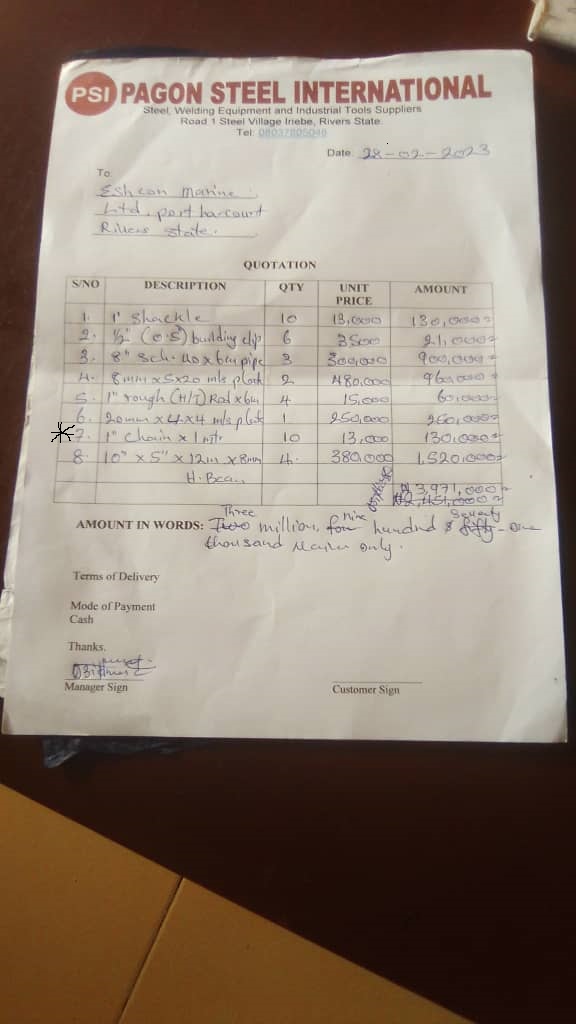 PSI PAGON STEEL INTERNATIONAL
Steel, Welding Equipment and Industrial Tools Suppliers
Road 1 Steel Village Iriebe, Rivers State.
Tel: 08037805048
Date. 28-02-2023
To.
Eshcon Marine
Ltd, port harcourt
Rivers state.
QUOTATION
S/NO DESCRIPTION QTY UNIT PRICE AMOUNT
1. 1" Shackle 10 13,000 130,000=
2. ½" building clip 6 3500 21,000=
3. 8" sch. 40 x 6m pipe 3 300,000 900,000=
4. 8mm x 5 x 20 m/s plate 2 480,000 960,000=
5. 1" rough (H/T) Rod x 6m 4 15,000 60,000=
6. 20mm x 4 x 4 m/s plate 1 250,000 250,000=
7. 1" Chain x 1 mtr 10 13,000 130,000=
8. 10" x 5" x 12m x 8mm 4. 380,000 1,520,000=
H. Beam
₦3,971,000=
₦2,451,000=
Three nine Seventy
AMOUNT IN WORDS: Two million, four hundred & fifty-one
thousand Naira only.
Terms of Delivery
Mode of Payment
Cash
Thanks.
Manager Sign Customer Sign